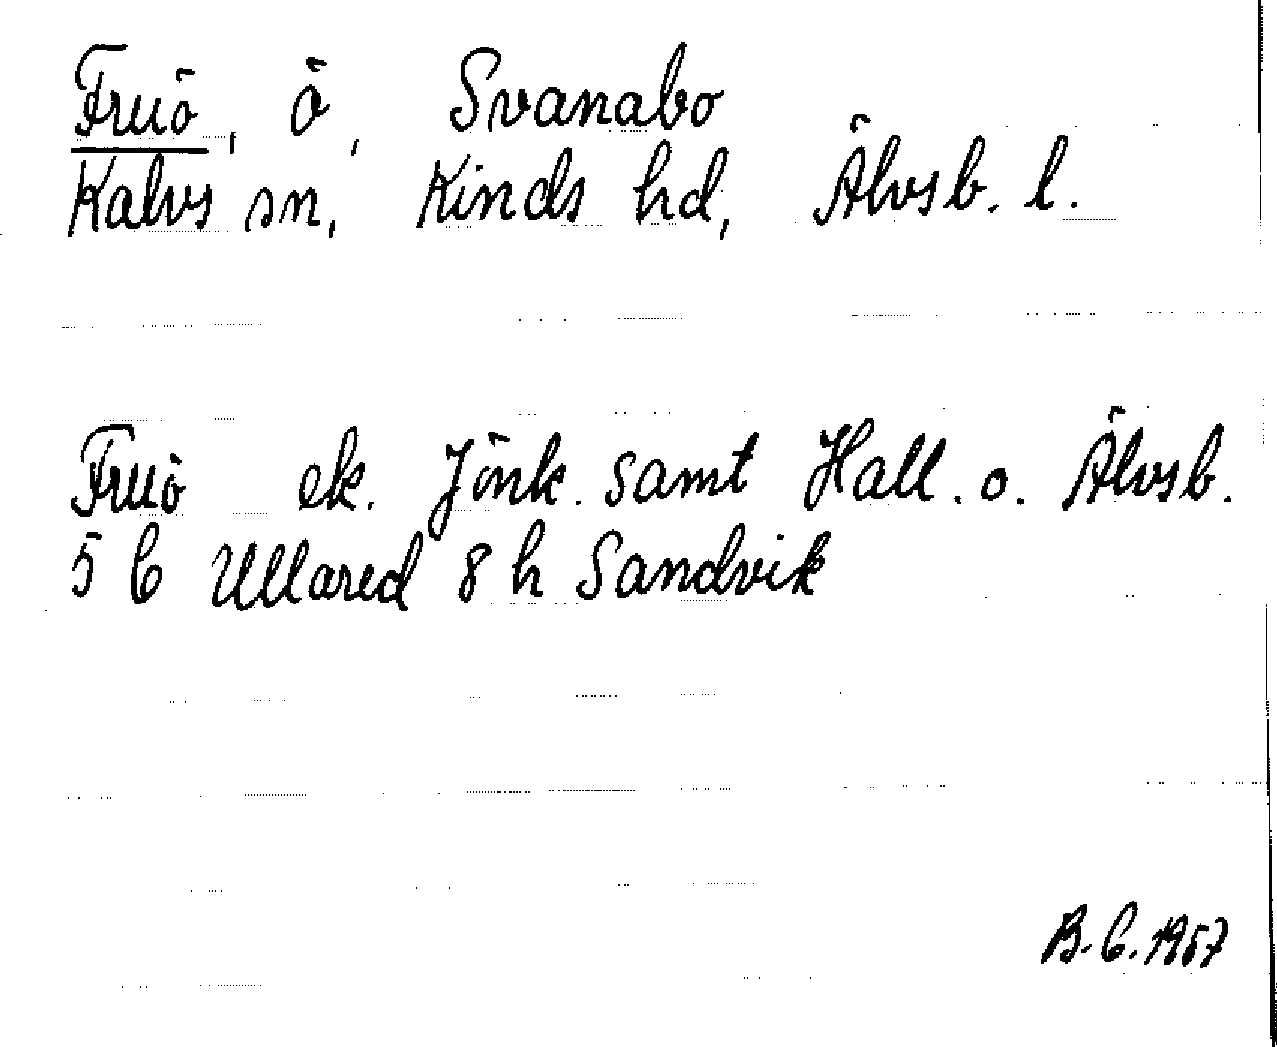 Fruö, ö, Svanabo
Kalvs sn, Kinds hd, Älvsb. l.
Fruö ek. Jönk. samt Hall. o. Älvsb.
5 C Ullared 8 h Sandvik
B. C. 1957